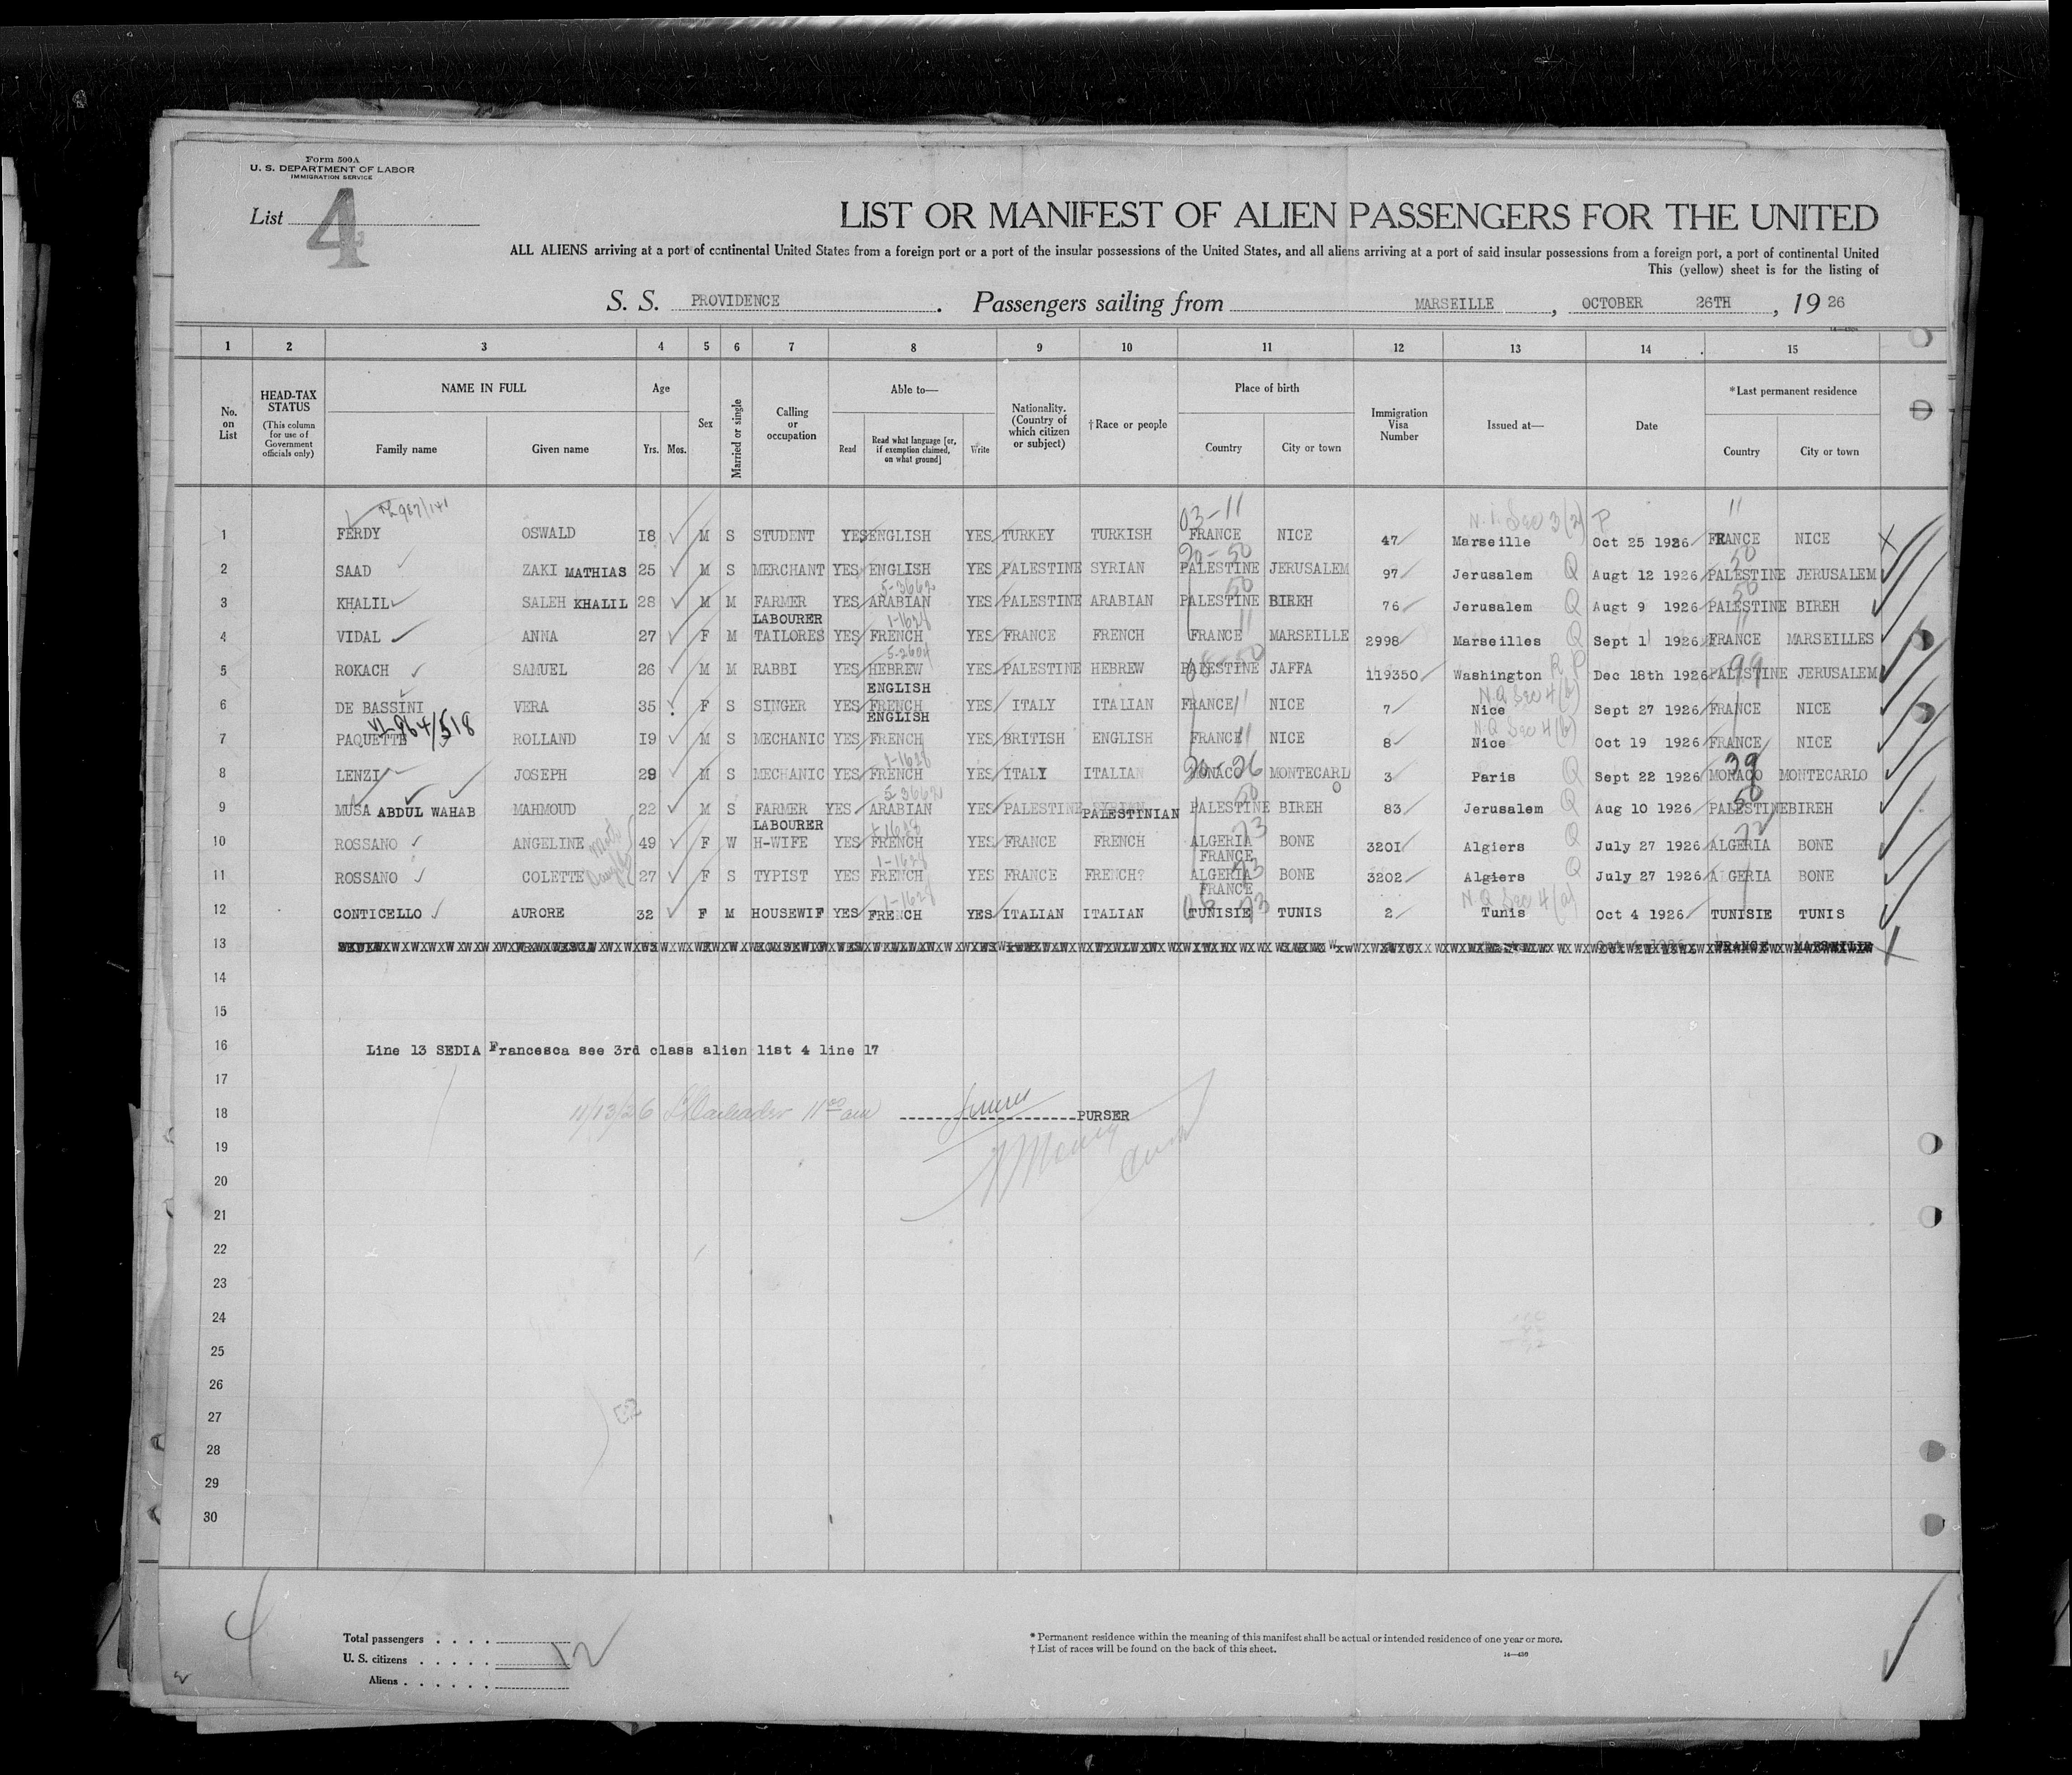 Form 500A
U. S. DEPARTMENT OF LABOR
IMMIGRATION SERVICE
List 4
LIST OR MANIFEST OF ALIEN PASSENGERS FOR THE UNITED
ALL ALIENS arriving at a port of continental United States from a foreign port or a port of the insular possessions of the United States, and all aliens arriving at a port of said insular possessions from a foreign port, a port of continental United
This (yellow) sheet is for the listing of
S. S. PROVIDENCE. Passengers sailing from MARSEILLE, OCTOBER 26TH, 19 26
1 2 3 4 5 6 7 8 9 10 11 12 13 14 15
No. on List
HEAD-TAX STATUS (This column for use of Government officials only)
NAME IN FULL Family name Given name
Age Yrs. Mos.
Sex
Married or single
Calling or occupation
Able to— Read Read what language [or, if exemption claimed, on what ground] Write
Nationality. (Country of which citizen or subject)
†Race or people
Place of birth Country City or town
Immigration Visa Number
Issued at—
Date
*Last permanent residence Country City or town
03-11 N. I. Sec 3(2) P 11
1 FERDY OSWALD 18 M S STUDENT YES ENGLISH YES TURKEY TURKISH FRANCE NICE 47 Marseille Oct 25 1926 FRANCE NICE
2 SAAD ZAKI MATHIAS 25 M S MERCHANT YES ENGLISH YES PALESTINE SYRIAN PALESTINE JERUSALEM 97 Jerusalem Q Augt 12 1926 PALESTINE JERUSALEM
5-3662 50 50
3 KHALIL SALEH KHALIL 28 M M FARMER LABOURER YES ARABIAN YES PALESTINE ARABIAN PALESTINE BIREH 76 Jerusalem Q Augt 9 1926 PALESTINE BIREH
1-1628 11 11
4 VIDAL ANNA 27 F M TAILORES YES FRENCH YES FRANCE FRENCH FRANCE MARSEILLE 2998 Marseilles Q Sept 1 1926 FRANCE MARSEILLES
5-2604
5 ROKACH SAMUEL 26 M M RABBI YES HEBREW ENGLISH YES PALESTINE HEBREW PALESTINE JAFFA 119350 Washington R P Dec 18th 1926 PALESTINE JERUSALEM
99 N.Q Sec 4(b)
6 DE BASSINI VERA 35 F S SINGER YES FRENCH ENGLISH YES ITALY ITALIAN FRANCE 11 NICE 7 Nice Sept 27 1926 FRANCE NICE
N.Q Sec 4(b)
7 PAQUETTE ROLLAND 19 M S MECHANIC YES FRENCH YES BRITISH ENGLISH FRANCE 11 NICE 8 Nice Oct 19 1926 FRANCE NICE
1-1628
8 LENZI JOSEPH 29 M S MECHANIC YES FRENCH YES ITALY ITALIAN MONACO MONTECARLO 3 Paris Q Sept 22 1926 MONACO 39 MONTECARLO
5 3662 50 50
9 MUSA ABDUL WAHAB MAHMOUD 22 M S FARMER LABOURER YES ARABIAN YES PALESTINE SYRIAN PALESTINIAN PALESTINE BIREH 83 Jerusalem Q Aug 10 1926 PALESTINE BIREH
1-1628 73 72
10 ROSSANO ANGELINE 49 F W H-WIFE YES FRENCH YES FRANCE FRENCH ALGERIA FRANCE BONE 3201 Algiers Q July 27 1926 ALGERIA BONE
1-1628 73
11 ROSSANO COLETTE 27 F S TYPIST YES FRENCH YES FRANCE FRENCH? ALGERIA FRANCE BONE 3202 Algiers Q July 27 1926 ALGERIA BONE
1-1628 N.Q Sec 4(a)
12 CONTICELLO AURORE 32 F M HOUSEWIF YES FRENCH YES ITALIAN ITALIAN TUNISIE TUNIS 2 Tunis Oct 4 1926 TUNISIE TUNIS
13
14
15
16 Line 13 SEDIA Francesca see 3rd class alien list 4 line 17
17
18 11/13/26 11 00 am PURSER
19
20
21
22
23
24
25
26
27
28
29
30
Total passengers . . . .
U. S. citizens . . . . . 12
Aliens . . . . . .
* Permanent residence within the meaning of this manifest shall be actual or intended residence of one year or more.
† List of races will be found on the back of this sheet.
14—430